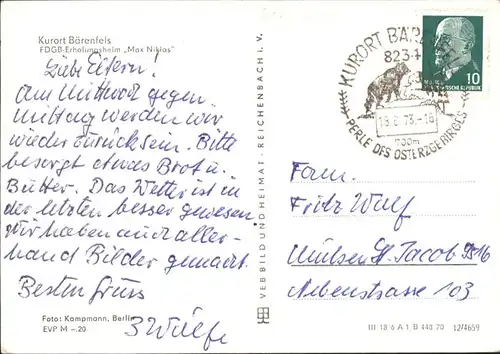 Kurort Bärenfels
FDGB-Erholungsheim „Max Niklas"
Liebe Eltern!
Am Mittwoch gegen
Mittag werden wir
wieder zurück sein. Bitte
besorgt etwas Brot u.
Butter. Das Wetter ist in
der letzten besser gewesen.
Wir haben auch aller-
hand Bilder gemacht.
Besten Gruss
3 Wulfe
Foto: Kampmann, Berlin
EVP M –.20
VEB BILD UND HEIMAT · REICHENBACH i. V.
KURORT BÄREN
8234
700m
PERLE DES OSTERZGEBIRGES
10
Fam.
Fritz Wulf
Mülsen St. Jacob 9516
Nebenstrasse 103
III 18 6 A 1 B 448 70 12/4659